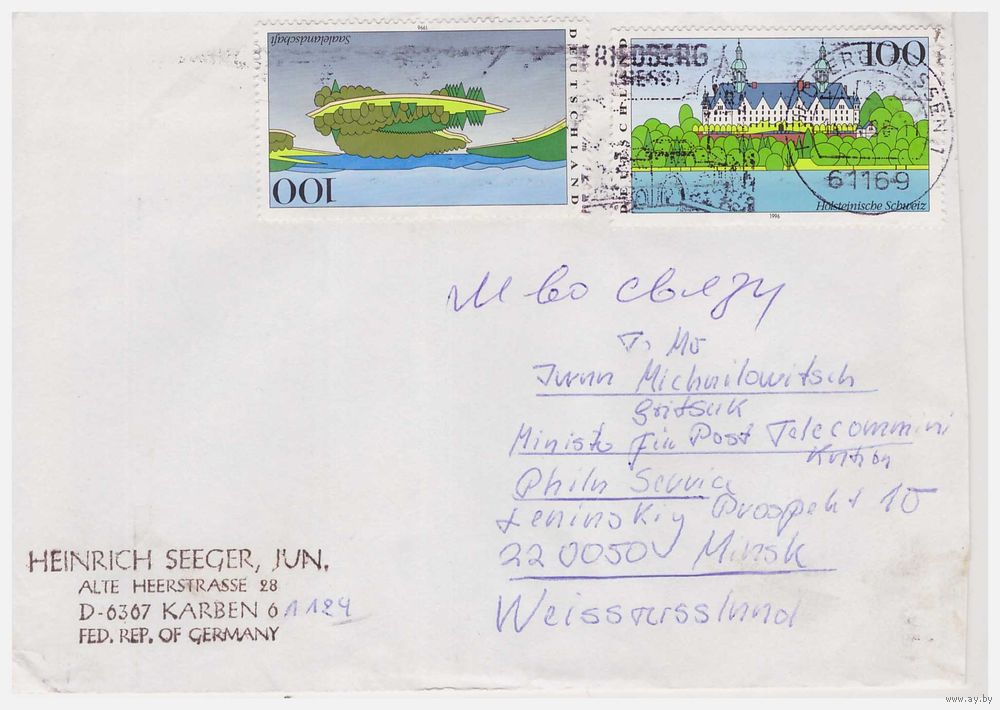 1996
Saalelandschaft
DEUTSCHLAND
100
FRIEDBERG
(HESS)
100
DEUTSCHLAND
61169
Holsteinische Schweiz
1996
М во связу
To Mr
Iwan Michailowitsch
Gritsuk
Minister für Post Telecommuni
kation
Phila Service
Leninskiy Prospekt 10
220050 Minsk
Weissrussland
HEINRICH SEEGER, JUN.
ALTE HEERSTRASSE 28
D-6367 KARBEN 6 1184
FED. REP. OF GERMANY
www.ay.by